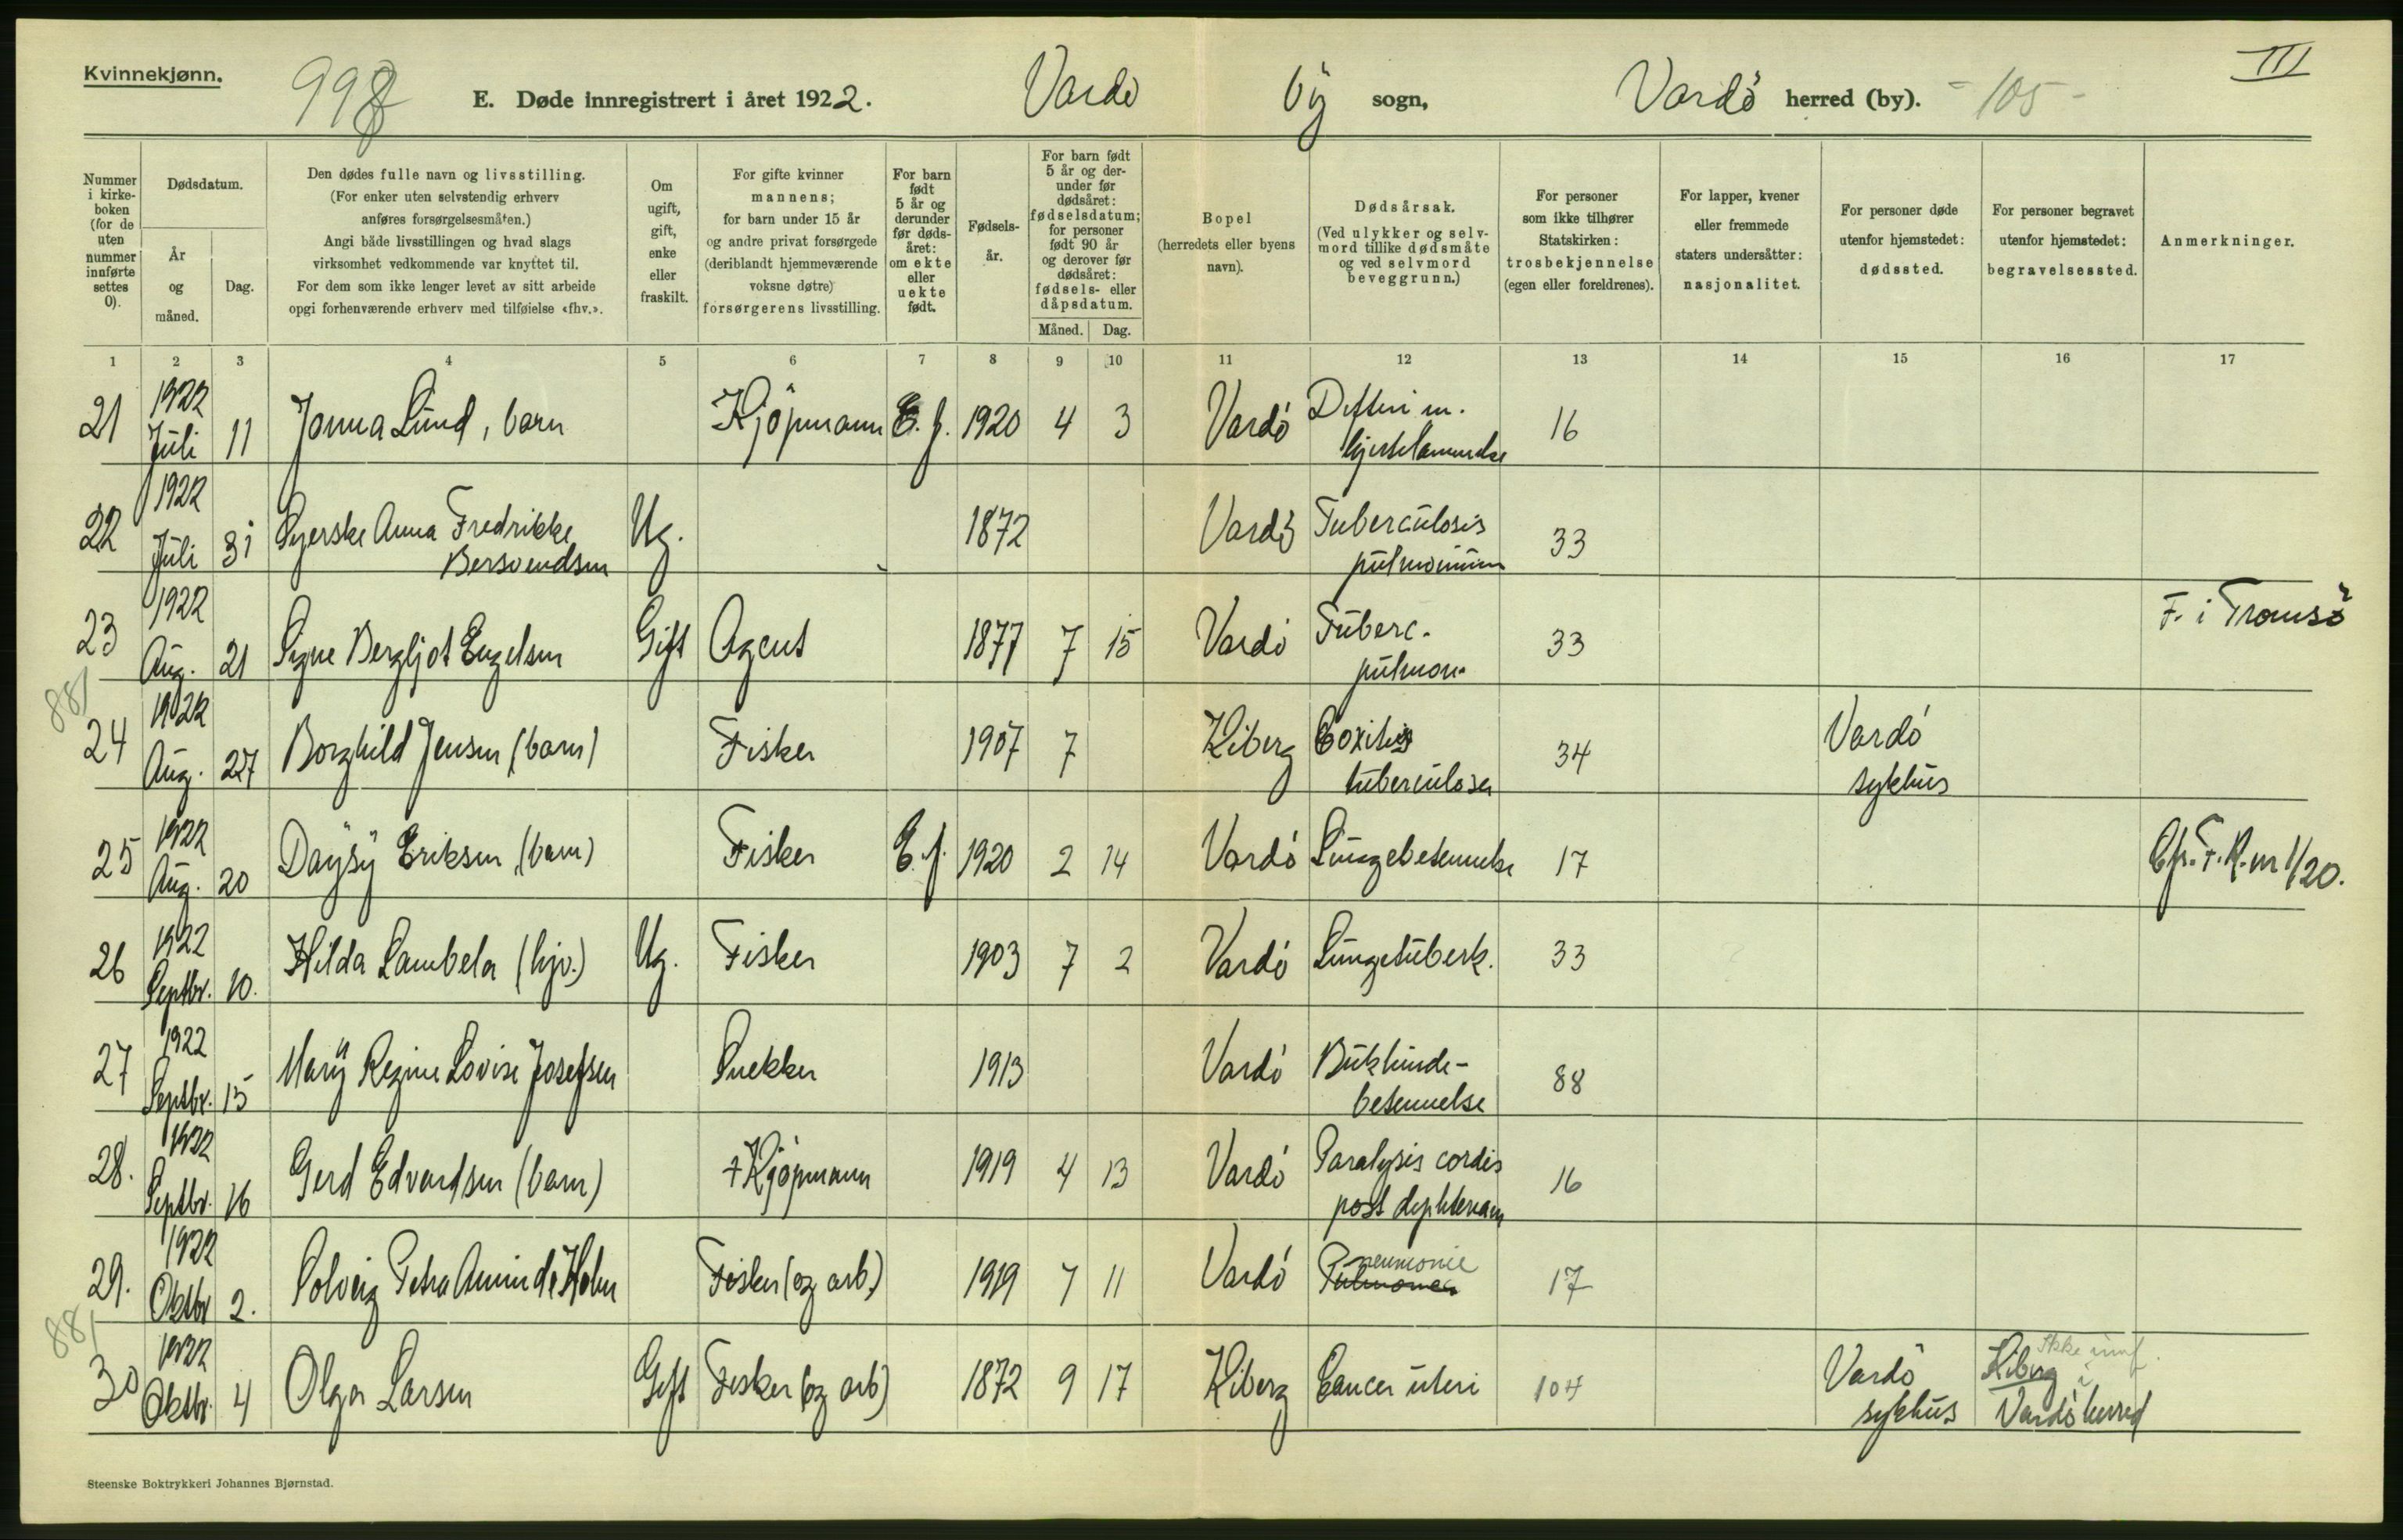 Kvinnekjønn.
998
E. Døde innregistrert i året 1922.
Vardö by sogn,
Vardö herred (by).
- 105 -
III
Nummer i kirke-boken (for de uten nummer innførte settes 0).
Dødsdatum.
År og måned.
Dag.
Den dødes fulle navn og livsstilling.
(For enker uten selvstendig erhverv anføres forsørgelsesmåten.)
Angi både livsstillingen og hvad slags virksomhet vedkommende var knyttet til.
For dem som ikke lenger levet av sitt arbeide opgi forhenværende erhverv med tilføielse «fhv.».
Om ugift, gift, enke eller fraskilt.
For gifte kvinner mannens; for barn under 15 år og andre privat forsørgede (deriblandt hjemmeværende voksne døtre) forsørgerens livsstilling.
For barn født 5 år og derunder før døds-året: om ekte eller uekte født.
Fødsels-år.
For barn født 5 år og der-under før dødsåret: fødselsdatum; for personer født 90 år og derover før dødsåret: fødsels- eller dåpsdatum.
Måned. Dag.
Bopel (herredets eller byens navn).
Dødsårsak.
(Ved ulykker og selv-mord tillike dødsmåte og ved selvmord beveggrunn.)
For personer som ikke tilhører Statskirken: trosbekjennelse (egen eller foreldrenes).
For lapper, kvener eller fremmede staters undersåtter: nasjonalitet.
For personer døde utenfor hjemstedet: dødssted.
For personer begravet utenfor hjemstedet: begravelsessted.
Anmerkninger.
1 2 3 4 5 6 7 8 9 10 11 12 13 14 15 16 17
21 1922 Juli 11 Jonna Lund, barn Kjöpmann E. f. 1920 4 3 Vardö Difteri m. hjertelammelse 16
22 1922 Juli 31 Syerske Anna Fredrikke Bersvendsen Ug. 1872 Vardö Tuberculosis pulmonum 33
23 1922 Aug. 21 Signe Bergljot Engelsen Gift Agent 1877 7 15 Vardö Tuberc. pulmon. 33 F. i Tromsö
881
24 1922 Aug. 27 Borghild Jensen (barn) Fisker 1907 7 Kiberg Coxitis tuberculosa 34 Vardö sykhus
25 1922 Aug. 20 Daysy Eriksen (barn) Fisker E. f. 1920 2 14 Vardö Lungebetennelse 17 Cfr. F. R. nr 1/20.
26 1922 Septbr. 10. Hilda Lambela (hjv.) Ug. Fisker 1903 7 2 Vardö Lungetuberk. 33
27 1922 Septbr. 15 Mary Regine Lovise Josefsen Snekker 1913 Vardö Bukhinde-betennelse 88
28. 1922 Septbr. 16 Gerd Edvardsen (barn) + Kjöpmann 1919 4 13 Vardö Paralysis cordis post dyphteriam 16
29. 1922 Oktbr 2. Solveig Petra Aminda Holm Fisker (og arb.) 1919 7 11 Vardö Pneumonie 17
881
30 1922 Oktbr. 4 Olga Larsen Gift Fisker (og arb) 1872 9 17 Kiberg Cancer uteri 104 Vardö sykhus Kiberg i Vardö herred
Steenske Boktrykkeri Johannes Bjørnstad.